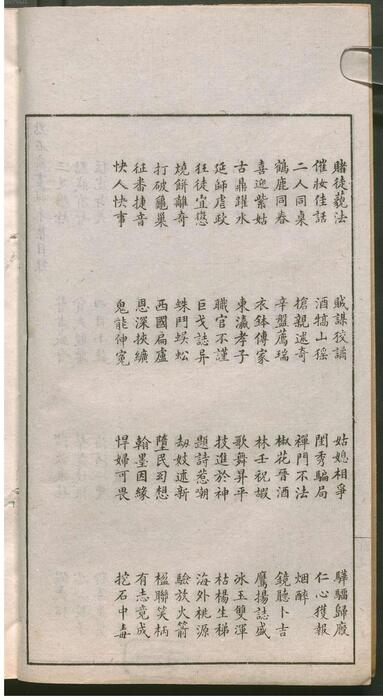 賭徒藐法　賊謀狡譎　姑媳相爭　驊騮歸廄
催妝佳話　酒犒山猺　閨秀騙局　仁心獲報
二人同桌　搶親述奇　禪門不法　烟醉
鶴鹿同春　辛盤薦瑞　椒花晉酒　鏡聽卜吉
喜迎紫姑　衣鉢傳家　林壬祝嘏　鷹揚誌盛
古鼎躍水　東瀛孝子　歌舞昇平　冰玉雙渾
延師虐政　職官不謹　技進於神　枯楊生梯
狂徒宜懲　巨戈誌异　題詩惹嘲　海外桃源
燒餅離奇　蛛鬥蜈蚣　劫妓述新　驗放火箭
打破龜巢　西國扁廬　墮民司想　楹聯笑柄
征番捷音　恩深挾纊　翰墨因緣　有志竟成
快人快事　鬼能伸冤　悍婦可畏　挖石中毒